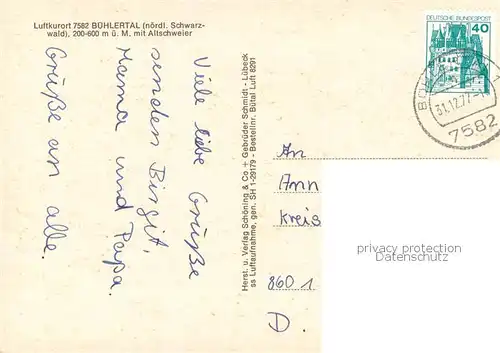 Luftkurort 7582 BÜHLERTAL (nördl. Schwarz-
wald), 200-600 m ü. M. mit Altschweier
Viele liebe Grüße
senden Birgit,
Mama und Papa.
Grüße an alle.
Herst. u. Verlag Schöning & Co + Gebrüder Schmidt - Lübeck
ss Luftaufnahme, gen. SH 1-29179 - Bestellnr. Bütal Luft 8291
DEUTSCHE BUNDESPOST
40
31.12.77
7582
An
Ann
Kreis
8601
D.
privacy protection
Datenschutz